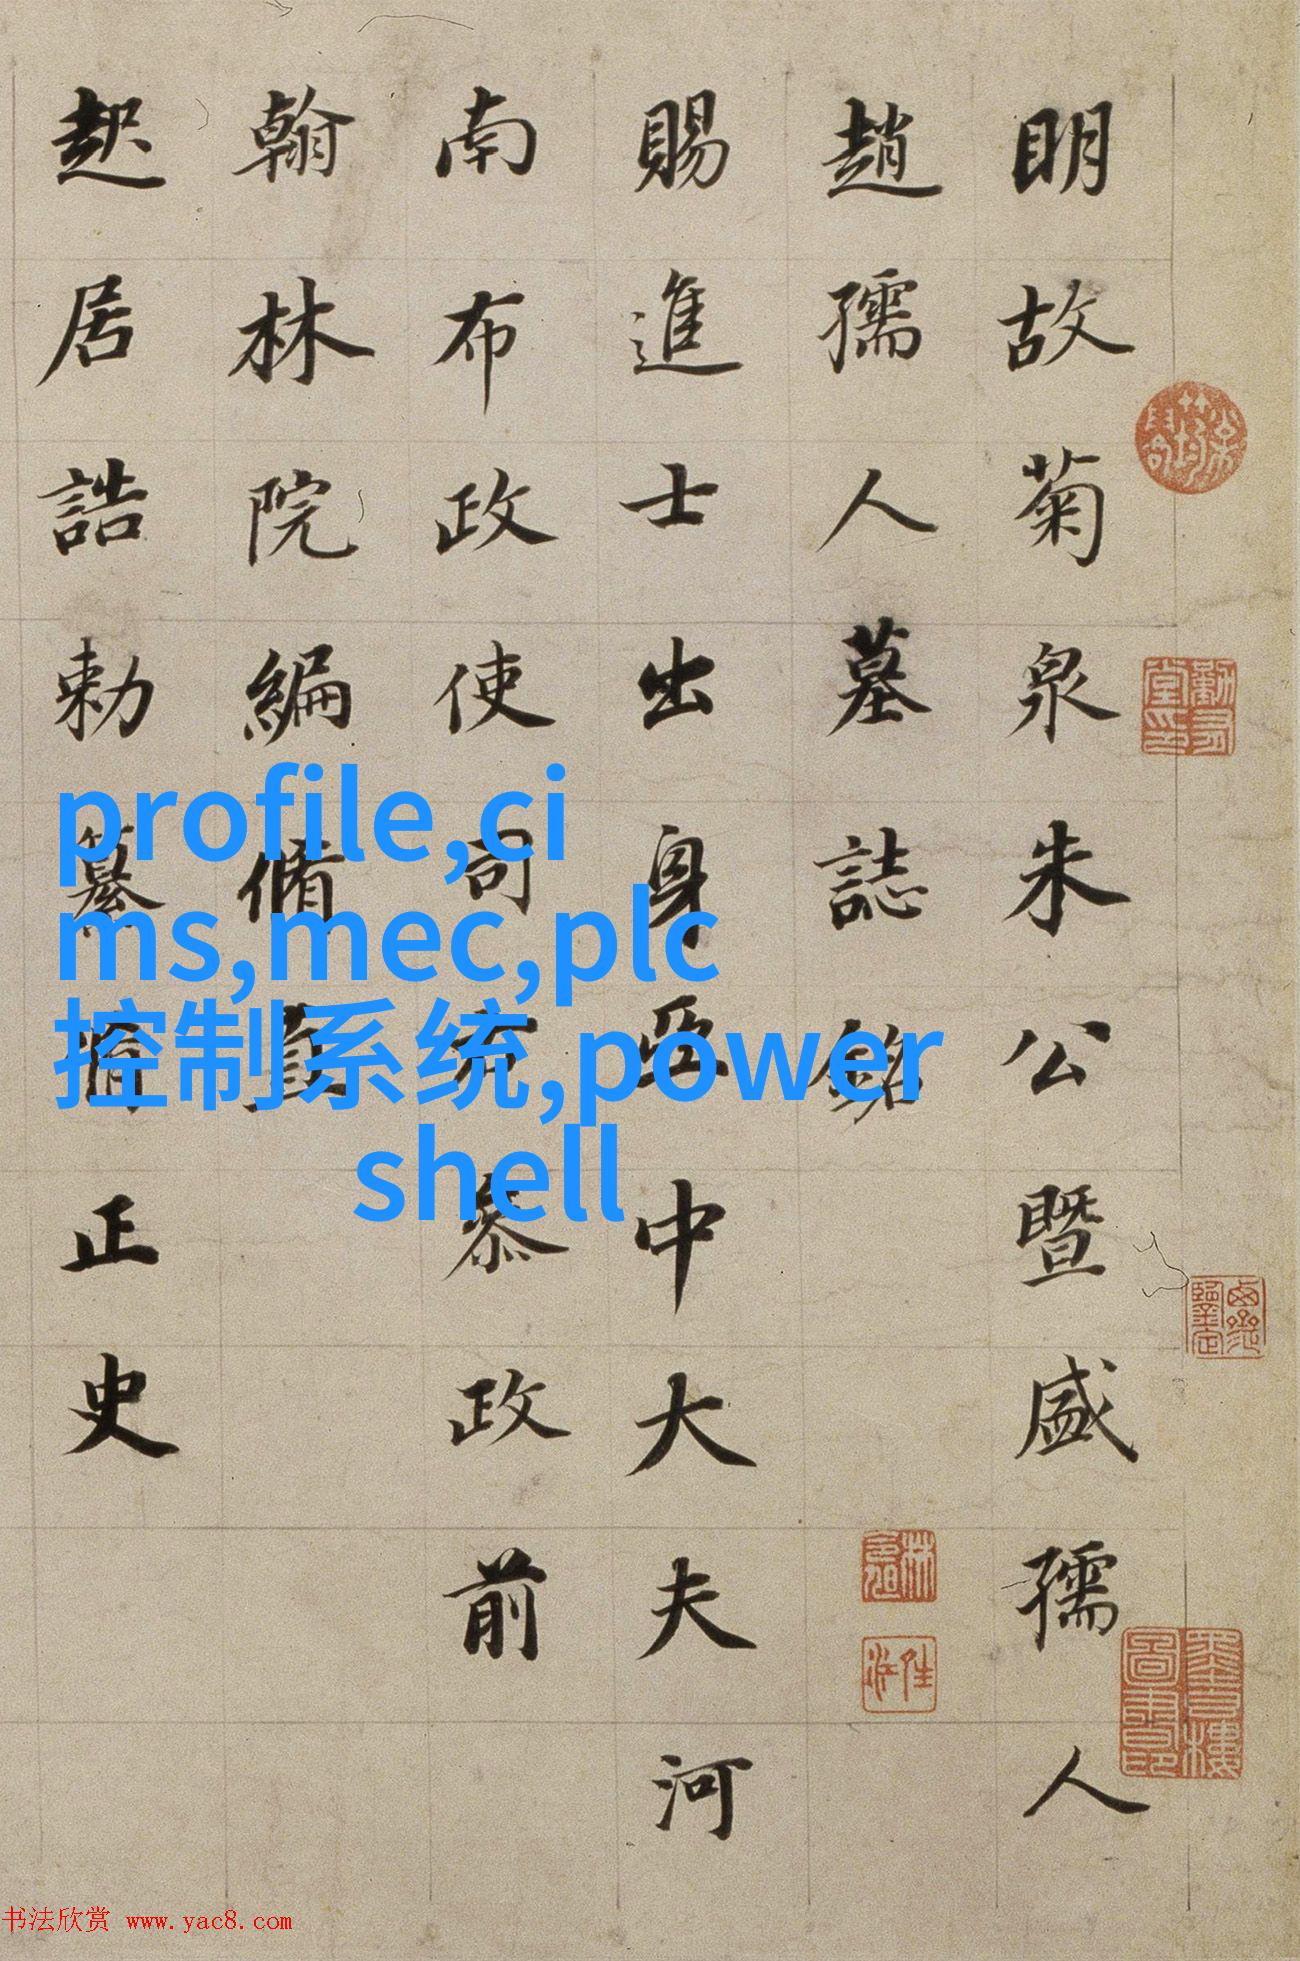 明故菊泉朱公暨盛孺人
趙孺人墓誌銘
賜進士出身亞中大夫河
南布政使司右叅政前
翰林院編脩
起居誥勅纂脩正史
profile,ci
ms,mec,plc
控制系统,power
shell
书法欣赏 www.yac8.com